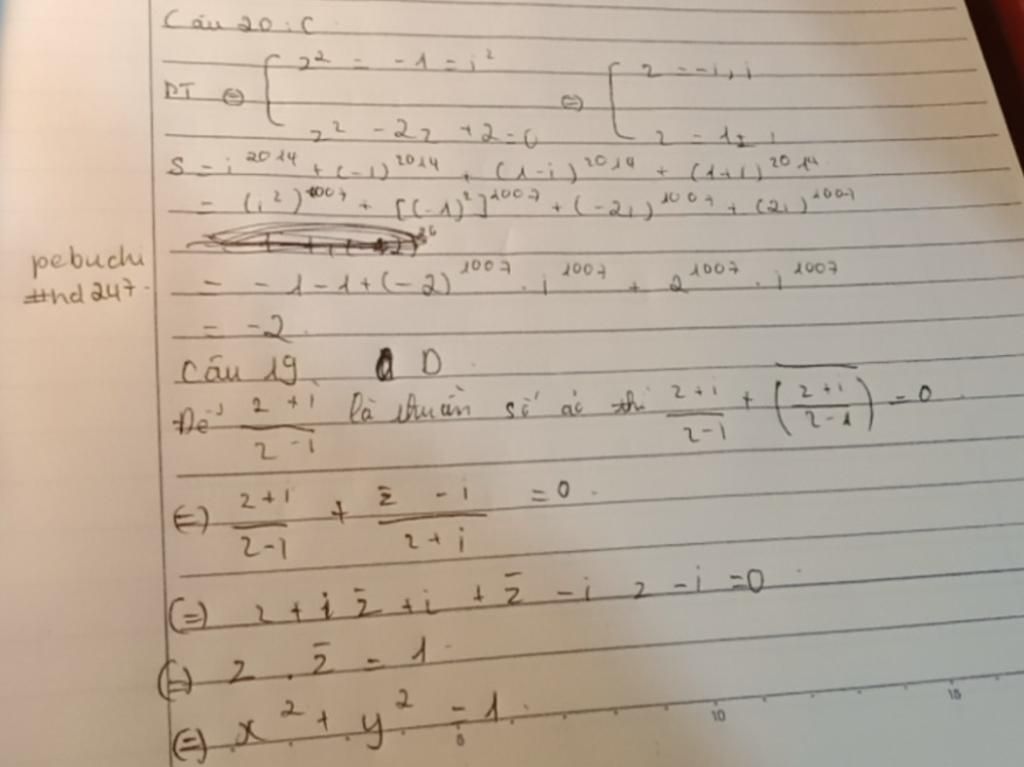 Câu 20: C
z² = -1 = i²
z = -i, i
PT ⇔
⇔
z² - 2z + 2 = 0
z = 1 ± i
S = i^2014 + (-i)^2014 + (1-i)^2014 + (1+i)^2014
= (i²)^1007 + [(-i)²]^1007 + (-2i)^1007 + (2i)^1007
= -1 - 1 + (-2)^1007 . i^1007 + 2^1007 . i^1007
pebuchi
#hd247.
= -2.
Câu 19. D.
Để (z + i)/(z - i) là thuần số ảo thì (z + i)/(z - i) + \overline{((z + i)/(z - i))} = 0.
⇔ (z + i)/(z - i) + (z̄ - i)/(z + i) = 0.
⇔ z + i z̄ + i + z̄ - i z - i = 0.
⇔ z . z̄ = 1.
⇔ x² + y² = 1.
10
15